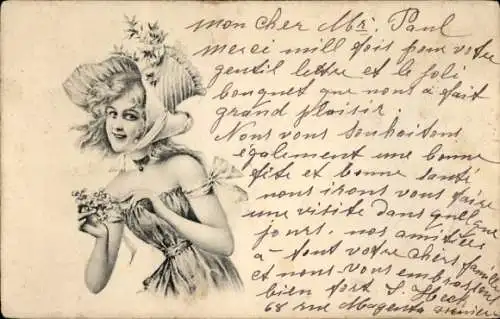 mon cher Mr. Paul
merci mill fois pour votre
gentil lettre et le joli
bouquet que nous a fait
grand plaisir.
Nous vous souhaitons
également une bonne
fête et bonne santé
nous irons vous faire
une visite dans quelque
jours. nos amitiés
à tout votre chers famille
et nous vous embrassons
bien fort S. Heck
68 rue Magenta